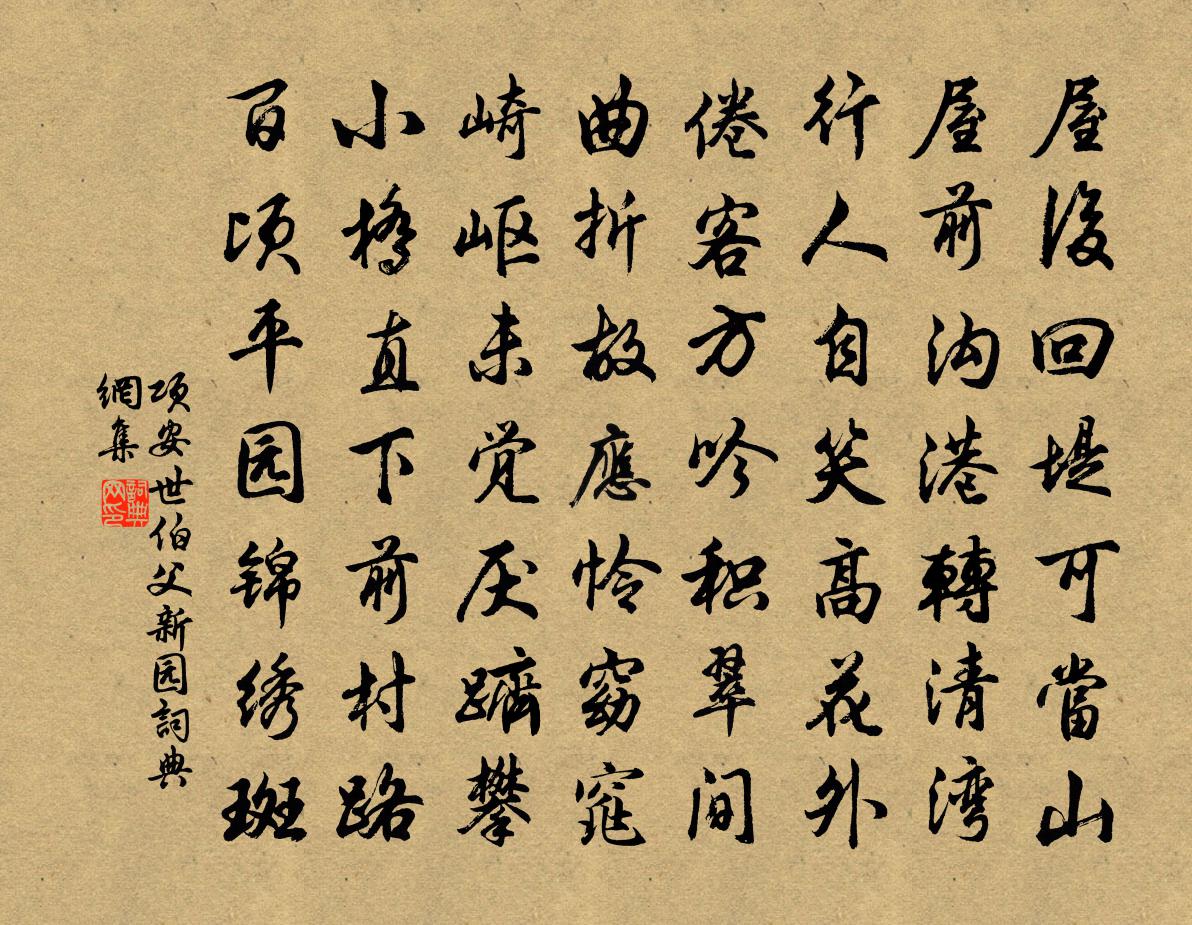 屋後回堤可當山
屋前沟港轉清湾
行人自笑高花外
倦客方吟积翠间
曲折故應怜窈窕
崎岖未觉厌躋攀
小橋直下前村路
百顷平园锦绣斑
项安世伯父新园詞典
網集
詞典
网印